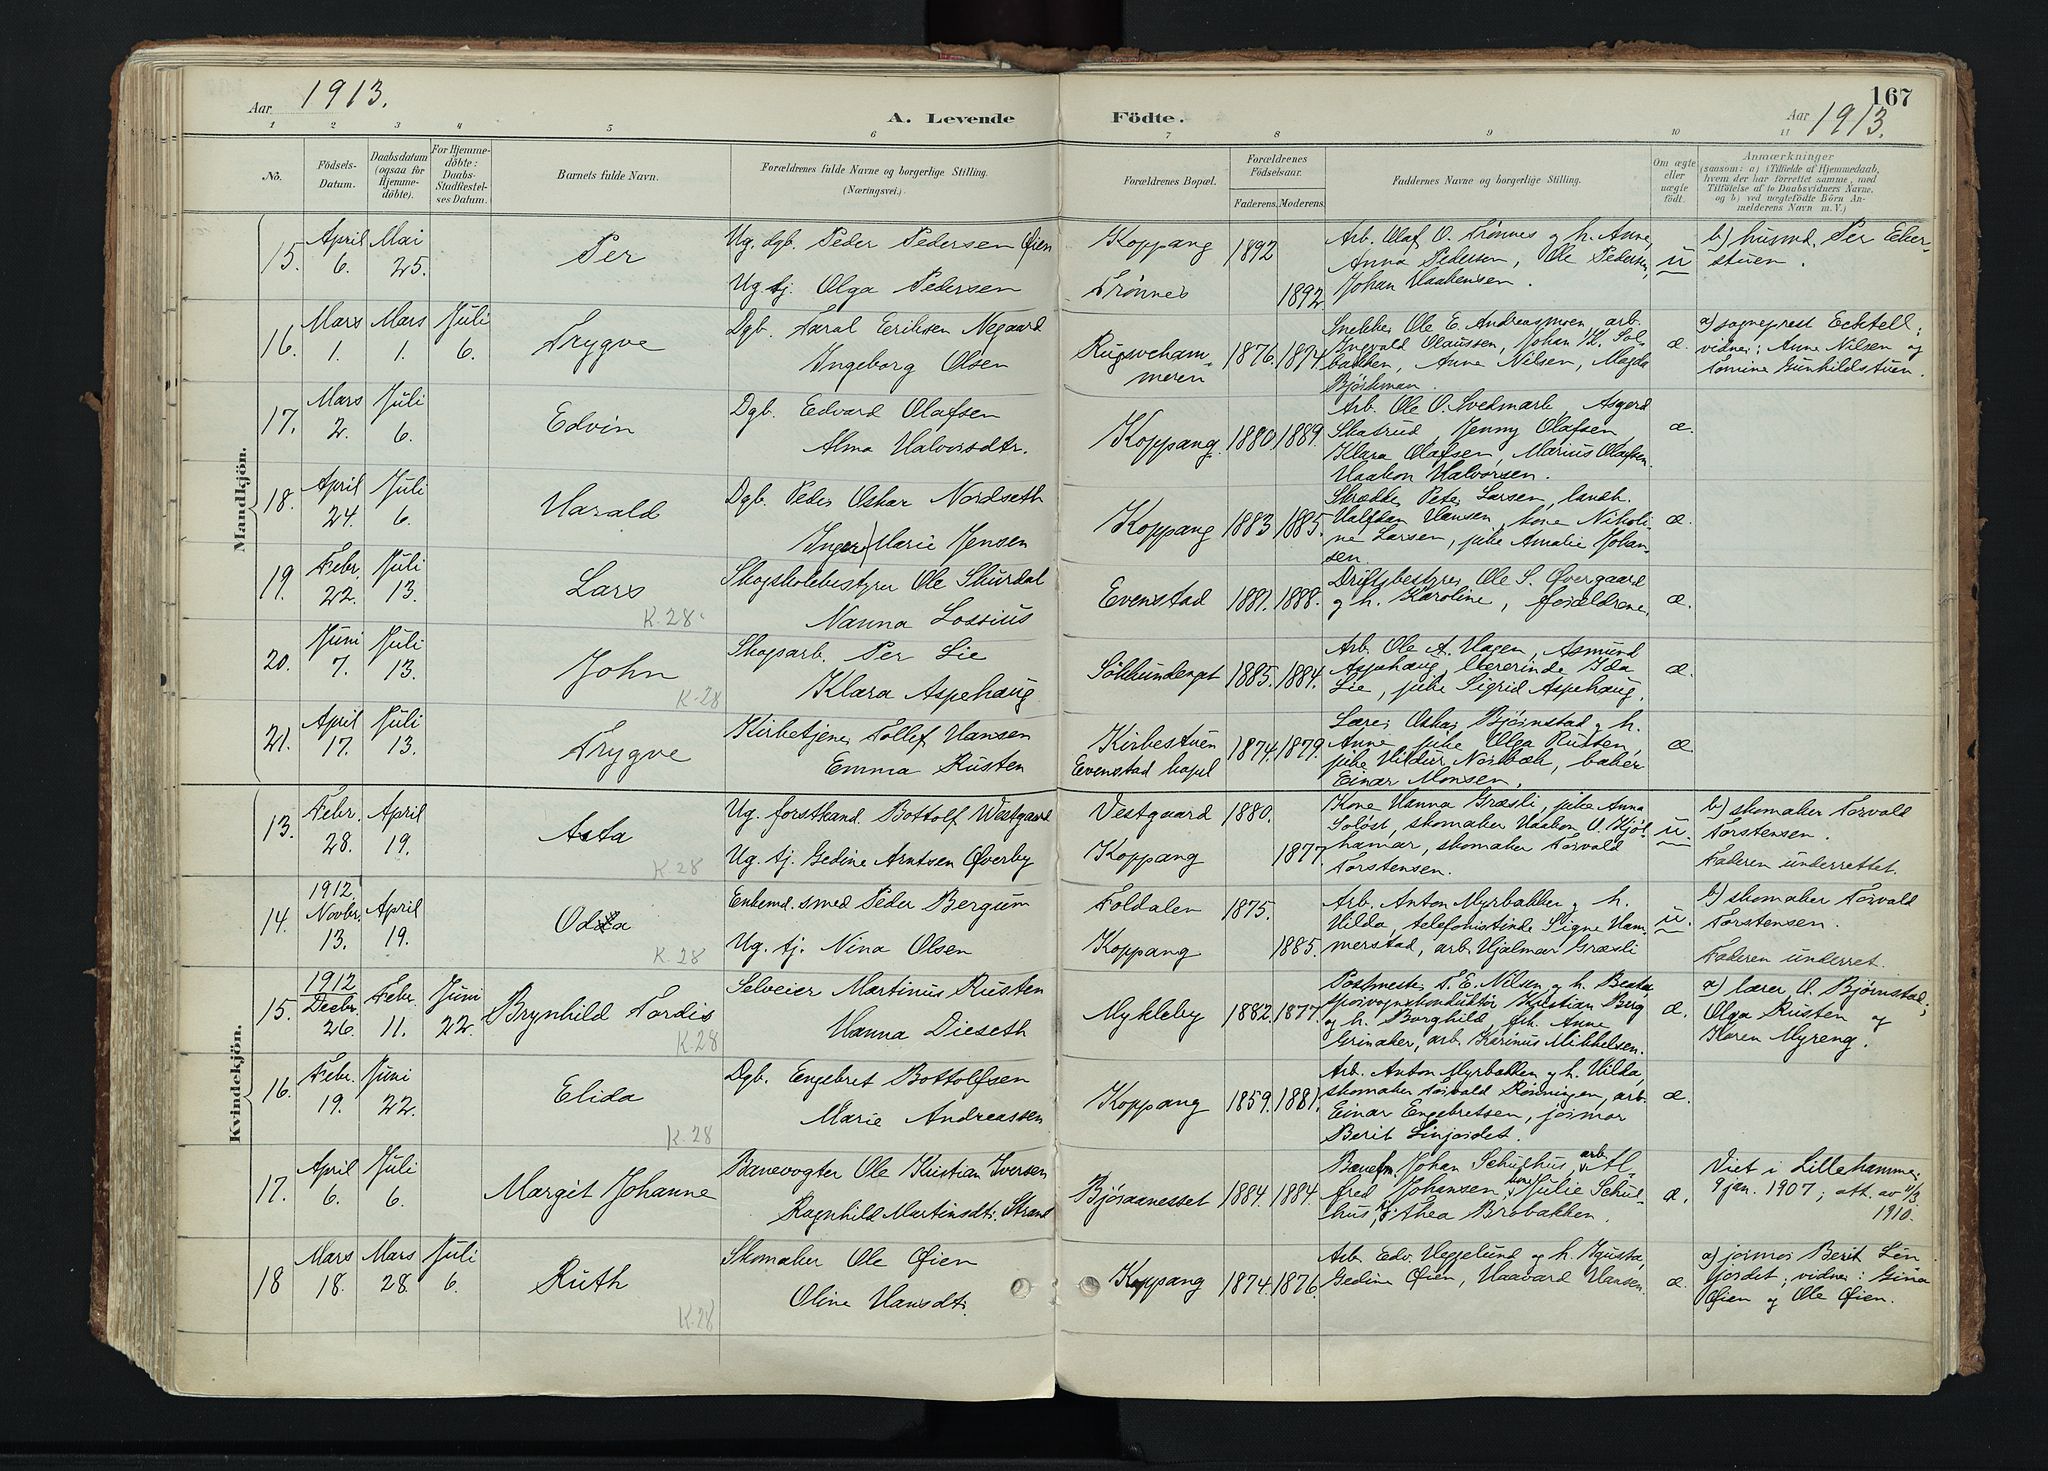 Aar 1913.
A. Levende Fødte.
167
Aar 1913.
1 2 3 4 5 6 7 8 9 10 11
No.
Födsels-Datum.
Daabsdatum (ogsaa for Hjemmedöbte).
For Hjemmedöbte: Daabs-Stadfæstelses Datum.
Barnets fulde Navn.
Forældrenes fulde Navne og borgerlige Stilling. (Næringsvei.)
Forældrenes Bopæl.
Forældrenes Födselsaar.
Faderens. Moderens.
Faddernes Navne og borgerlige Stilling.
Om ægte eller uægte födt.
Anmærkninger
(saasom: a) i Tilfælde af Hjemmedaab, hvem der har forrettet samme, med Tilföielse af to Daabsvidners Navne, og b) ved uægtefödte Börn Anmelderens Navn m. V.)
Mandkjön.
15. April 6. Mai 25. Per
Ug. dgb. Peder Pedersen Øien
Ug. tj. Olga Pedersen
Koppang 1892
Trønnes 1892
Arb. Olaf O. Trønnes og h. Anne,
Anna Pedersen, Ole Pedersen,
Johan Haakensen.
u
b) husmd. Per Eker-
stuen.
16. Mars 1. Mars 1. Juli 6. Trygve
Dgb. Taral Eriksen Negaard
Ingeborg Olsen
Rugsveham-
meren 1876. 1894
Snekker Ole E. Andreasmoen, arb.
Ingvald Olaussen, Johan H. Sol-
bakken, Anne Nilsen, Magda
Björkman.
æ.
a) sogneprest Ecktell;
vidner: Anne Nilsen og
Tomine Gunhildstuen.
17. Mars 2. Juli 6. Edvin
Dgb. Edvard Olafsen
Alma Halvorsdtr.
Koppang 1880. 1889.
Arb. Ole O. Svedmark, Asgerd
Skasrud, Jenny Olafsen,
Klara Olafsen, Marius Olafsen
Haakon Halvorsen.
æ.
18. April 24. Juli 6. Harald
Dgb. Peder Oskar Nordseth
Inger Marie Jensen
Koppang 1883 1885.
Skrædder Peter Larsen, landh.
Halfdan Hansen, kone Nikoli-
ne Larsen, pike Amalie Johan-
sen
æ.
19. Febr. 22. Juli 13. Lars K.28
Skogskolebestyrer Ole Skurdal
Nanna Lossius
Evenstad 1881. 1888.
Driftsbestyrer Ole S. Øvergaard
og h. Karoline, forældrene,
æ.
20. Juni 7. Juli 13. John K-28
Skogsarb. Per Lie
Klara Aspehaug
Sölkkundengt 1885. 1884.
Arb. Ole A. Hagen, Asmund
Aspehaug, lærerinde Ida
Lie, pike Sigrid Aspehaug,
æ
21. April 17. Juli 13. Trygve
Kirketjener Tollef Hansen
Emma Rusten
Kirkestuen
Evenstad kapel 1874. 1879.
Lærer Oskar Bjørnstad og h.
Anne, pike Olga Rusten,
pike Hildur Norbæk, baker
Einar Monsen.
æ
Kvindekjön.
13. Febr. 28. April 19. Asta K-28
Ug. forstkand Bottolf Westgaard
Ug. tj. Gedine Arntsen Øverby
Vestgaard 1880.
Koppang 1877
Kone Hanna Græsli, pike Anna
Soløst, skomaker Haakon O. Kjøl-
hamar, skomaker Torvald
Torstensen.
u.
b) skomaker Torvald
Torstensen.
Faderen underrettet.
14. 1912 Novbr. 13. April 19. Odda K.28
Enkemd. smed Peder Bergum
Ug. tj. Nina Olsen
Foldalen 1875.
Koppang 1885
Arb. Anton Myrbakken og h.
Hilda, telefonistinde Signe Ham-
merstad, arb. Hjalmar Græsli
u.
b) skomaker Torvald
Torstensen.
Faderen underret.
15. 1912 Decbr. 26. Febr. 11. Juni 22. Brynhild Tordis K.28
Selveier Martinus Rusten
Hanna Dieseth
Mykleby 1882. 1877
Postmester T. E. Nilsen og h. Beata,
sporvognskonduktör Kristian Berg
og h. Borghild, frk. Anne
Grinaker, arb. Karinus Mikkelsen.
æ.
a) lærer O. Bjørnstad;
Olga Rusten og
Karen Myreng.
16. Febr. 19. Juni 22. Elida K.28
Dgb. Engebret Bottolfsen
Marie Andreassen
Koppang 1859. 1881.
Arb. Anton Myrbakken og h. Hilda,
skomaker Torvald Rönningen, arb.
Einar Engebretsen, jormor
Berit Linjordet.
æ.
17. April 6. Juli 6. Margit Johanne
Banevogter Ole Kristian Iversen
Ragnhild Martinsdtr. Strand
Björaanesset 1884. 1884.
Banefm. Johan Schulhus, arb. Al-
fred Johansen, Julie Schul-
hus, Thea Brobakken.
æ.
Viet i Lillehammer
9 jan. 1907; att. av 11/3
1910.
18 Mars 18. Mars 28. Juli 6. Ruth K.28
Skomaker Ole Øien
Oline Hansdtr
Koppang 1874. 1876.
Arb. Edv. Heggelund og h. Gusta,
Gedine Øien, Haavard Hansen
æ.
a) jormor Berit Lin-
jordet; vidner: Gina
Øien og Ole Øien.